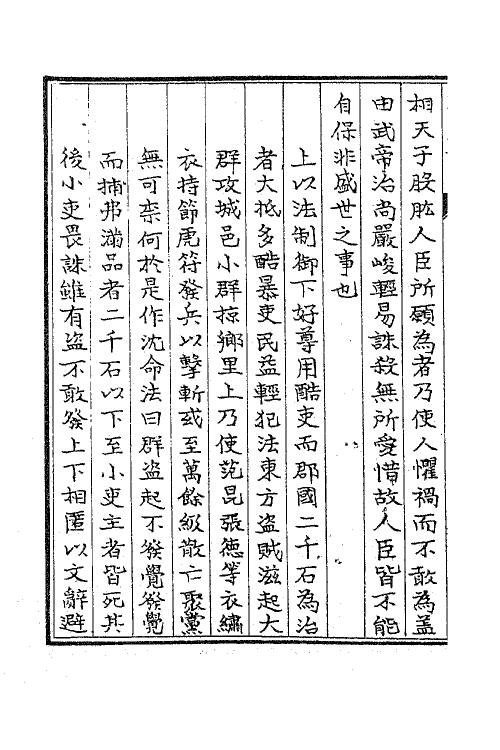 相天子股肱人臣所願為者乃使人懼禍而不敢為蓋
由武帝治尚嚴峻輕易誅殺無所愛惜故人臣皆不能
自保非盛世之事也
上以法制御下好尊用酷吏而郡國二千石為治
者大抵多酷暴吏民益輕犯法東方盜賊滋起大
群攻城邑小群掠鄉里上乃使范昆張德等衣繡
衣持節虎符發兵以擊斬或至萬餘級散亡聚黨
無可柰何於是作沈命法曰群盜起不發覺發覺
而捕弗滿品者二千石以下至小吏主者皆死其
後小吏畏誅雖有盜不敢發上下相匿以文辭避